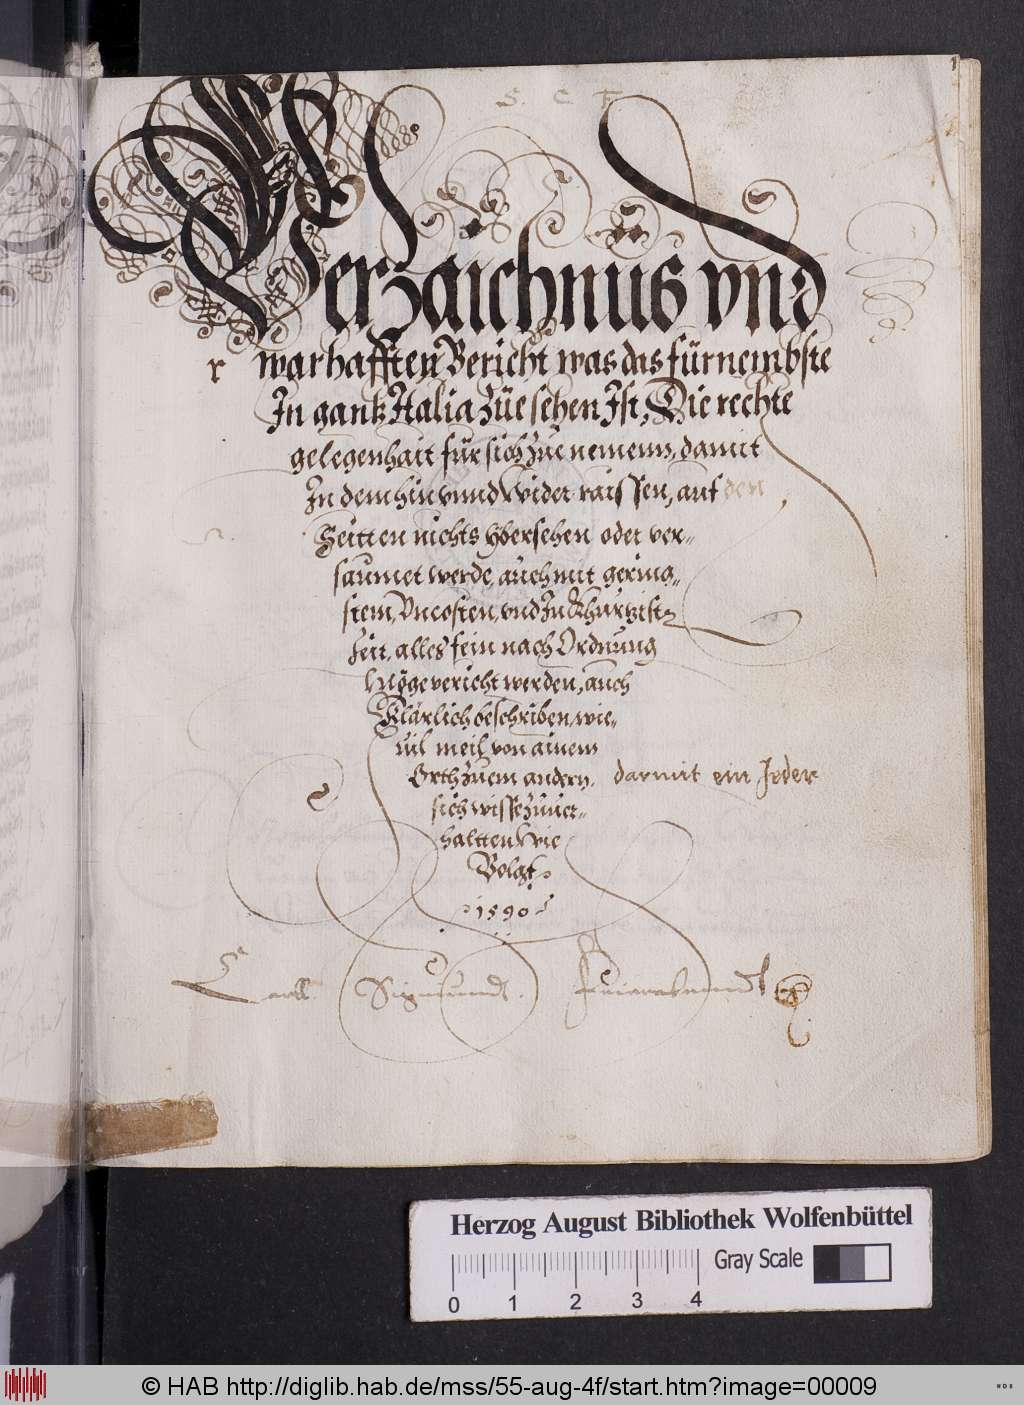 1
S. C. F.
Verzaichnus vnd
r warhafften Bericht was das fürnembste
In gantz Italia züe sehen Ist, Die rechte
gelegenhait für sich zue nemenn, damit
In dem hin vnnd wider raissen, auf den
Seitten nichts ÿbersehen oder ver-
saumet werde, auch mit gering-
stem, Vncosten, vnd In Khürtzist
Zeit, alles fein nach Ordnung
Möge vericht werden, auch
Klärlich beschriben, wie-
uil meil von ainem
Orth zuem andern, darmit ein Jeder
sich wisse zuuer-
haltten Wie
Volgt.
1590
Carll Sigmundt
Herzog August Bibliothek Wolfenbüttel
Gray Scale
0 1 2 3 4
© HAB http://diglib.hab.de/mss/55-aug-4f/start.htm?image=00009